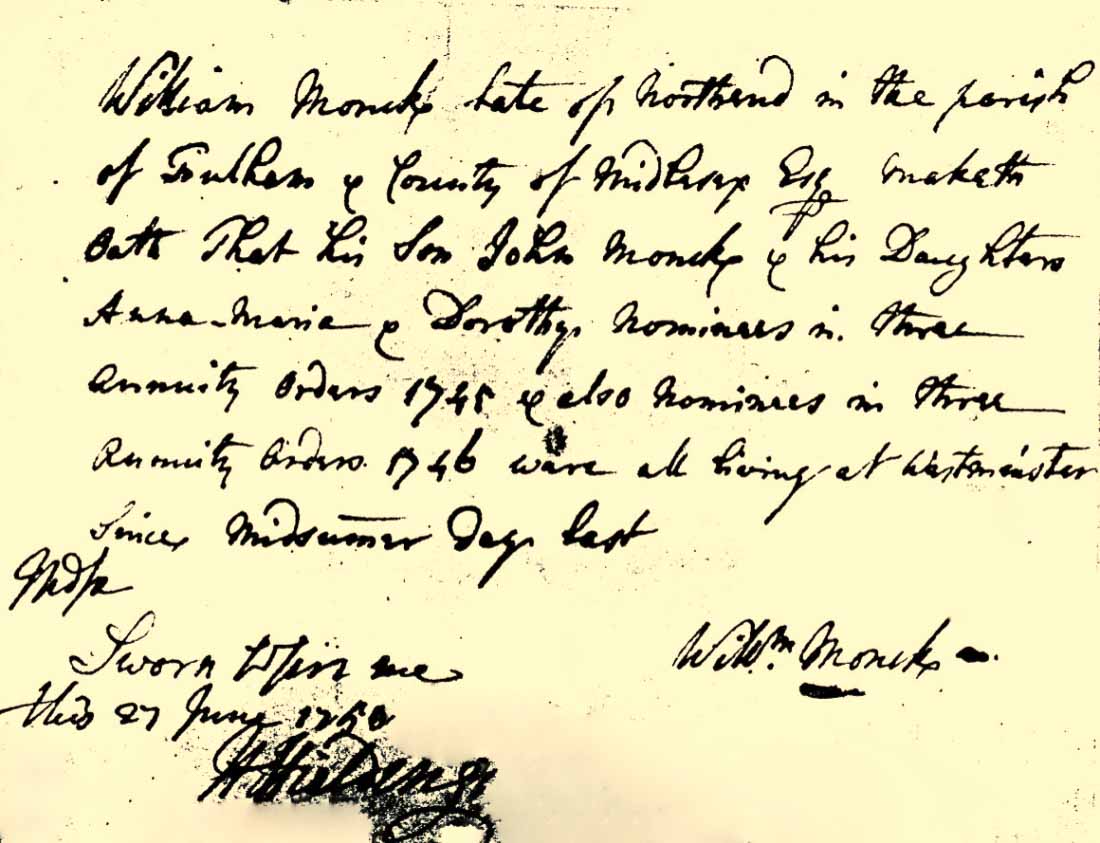 William Monck late of Northend in the parish
of Fulham & County of Middlesex Esq maketh
Oath That his Son John Monck & his Daughters
Anna-Maria & Dorothy Nominees in three
Annuity Orders 1745 & also Nominees in three
Annuity Orders 1746 were all living at Westminster
Since Midsummer Day last
Mdsx
Sworn before me
this 27 June 1750
Willm. Monck
H Fielding